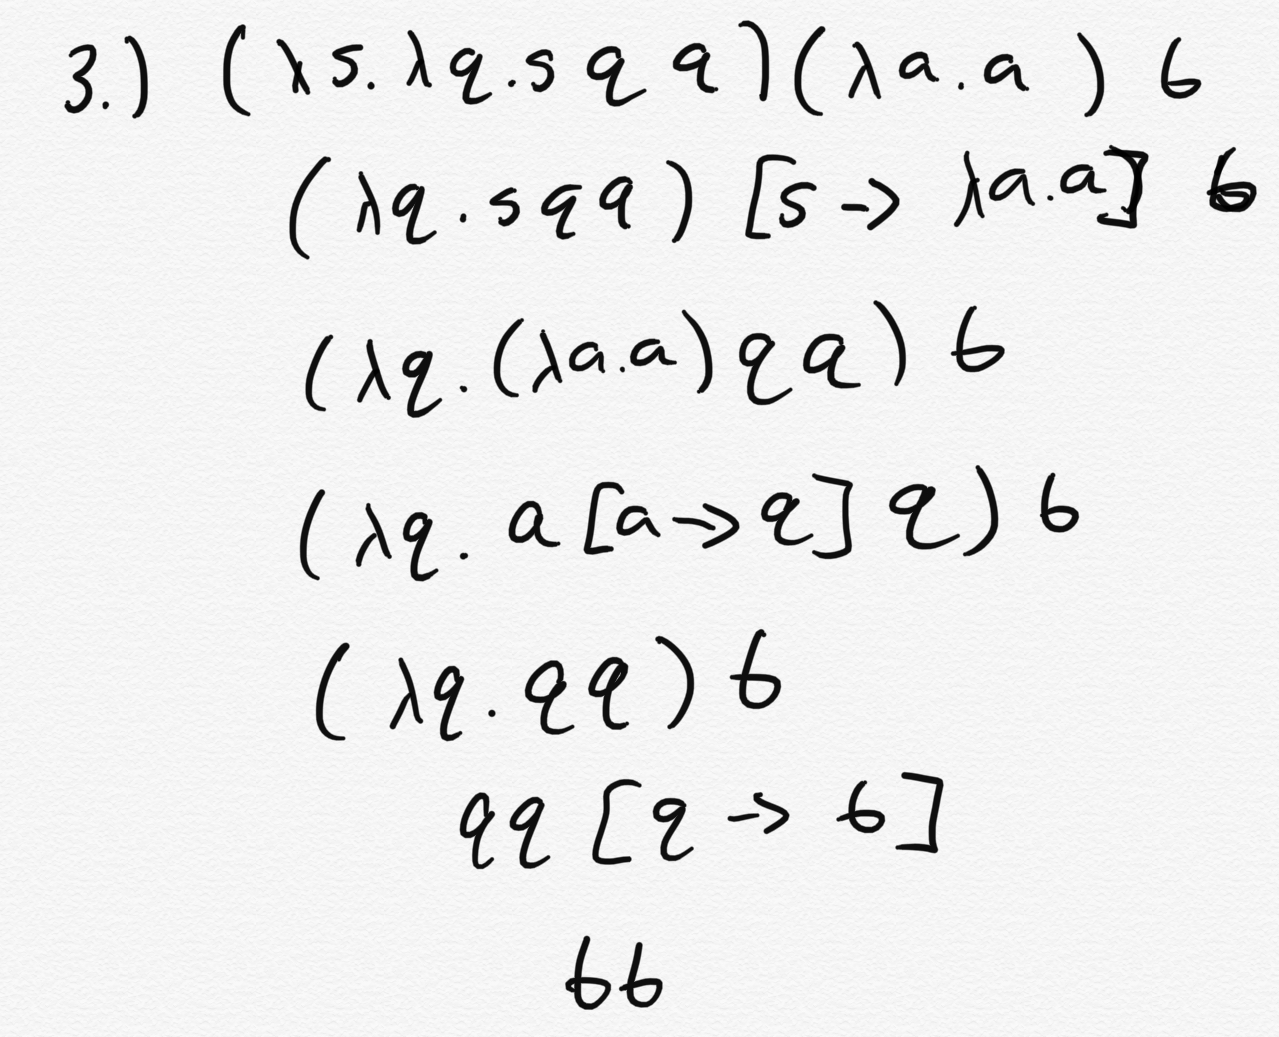 3.) (λs.λq.s q q)(λa.a) b
(λq.sqq)[s->λa.a] b
(λq.(λa.a)qq) b
(λq.a[a->q]q) b
(λq.qq) b
qq[q->b]
bb